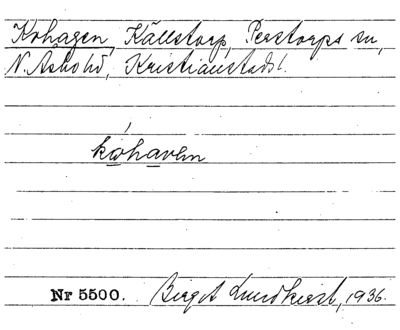 Kohagen, Källstorp, Perstorps sn,
N. Åsbo hd, Kristianstads l.
Nr 5500. Birgit Lundkvist, 1936.